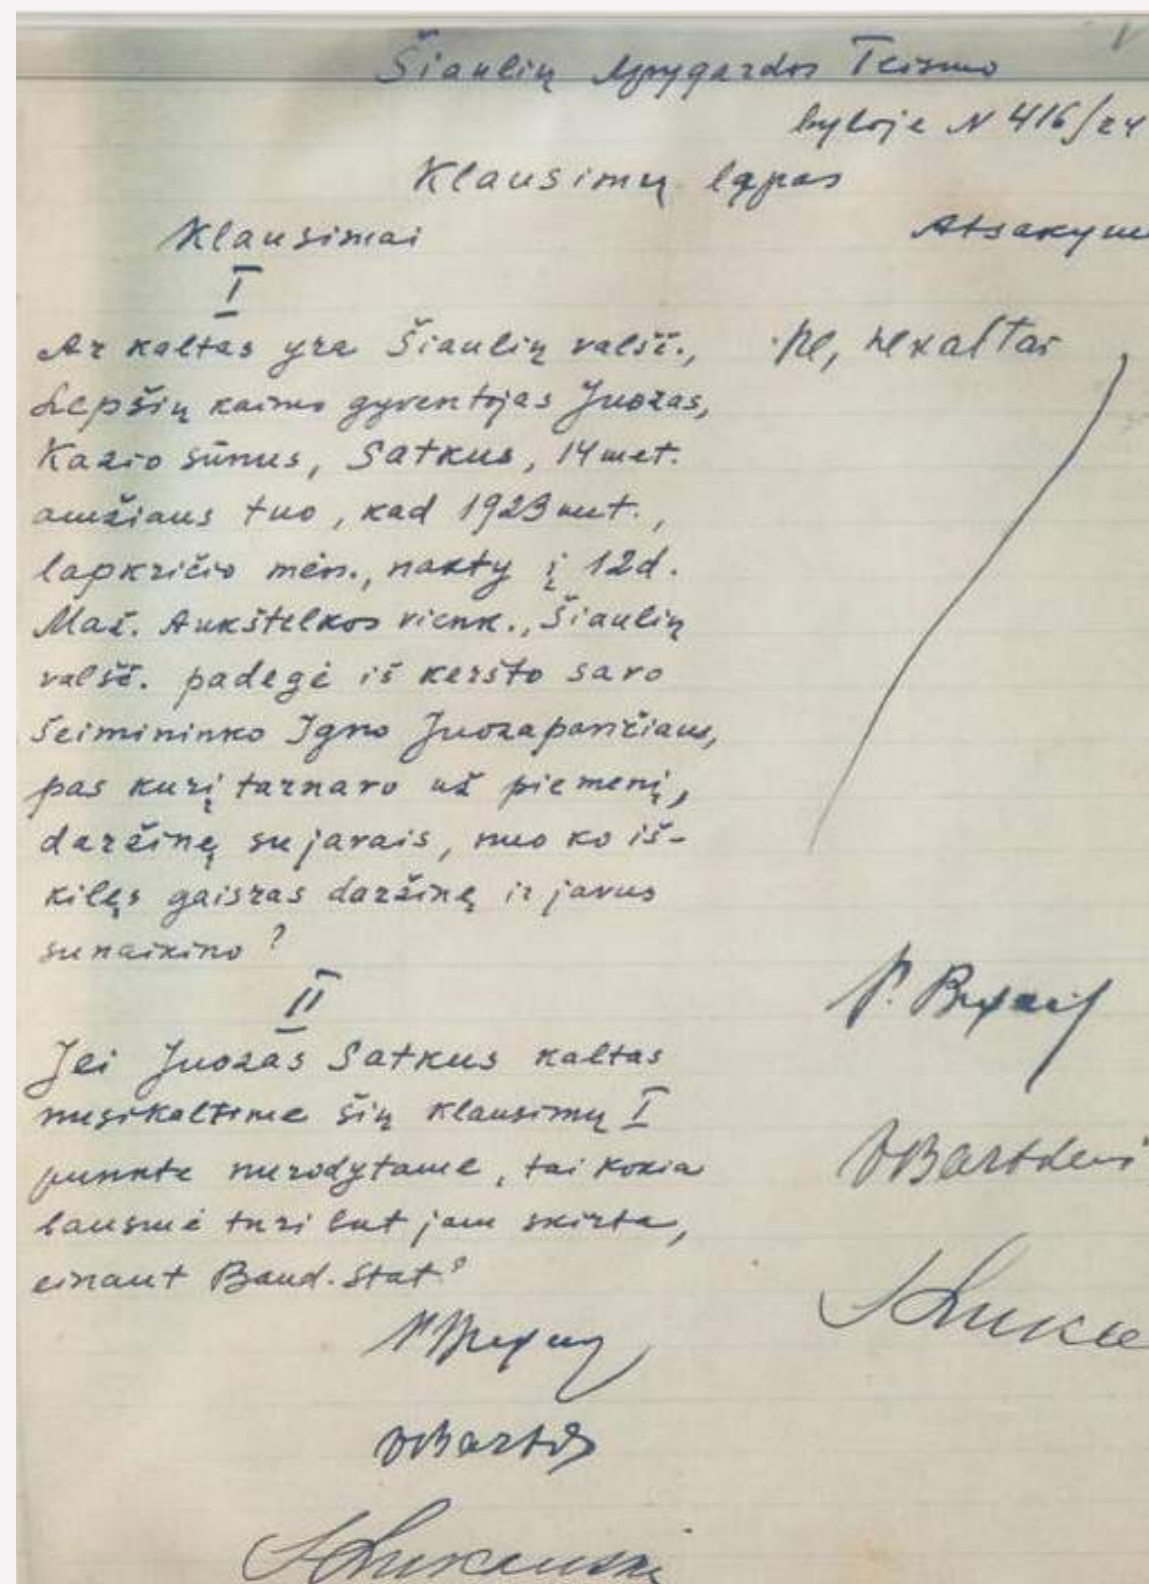 Šiaulių Apygardos Teismo
byloje N 416/24
Klausimų lapas
Klausimai
Atsakym
I
Ar kaltas yra Šiaulių valšč.,
Lepšių kaimo gyventojas Juozas,
Kazio sūnus, Satkus, 14 met.
amžiaus tuo, kad 1923 met.,
lapkričio mėn., naktų į 12 d.
Maž. Aukštelkos vienk., Šiaulių
valšč. padegė iš keršto savo
šeimininko Igno Juozapavičiaus,
pas kurį tarnavo už piemenį,
daržinę su javais, nuo ko iš-
kilęs gaisras daržinę ir javus
sunaikino?
Ne, nekaltas
II
Jei Juozas Satkus kaltas
nusikaltime šių klausimų I
punkte nurodytame, tai kokia
bausmė turi but jam skirta,
einant Baud. Stat?